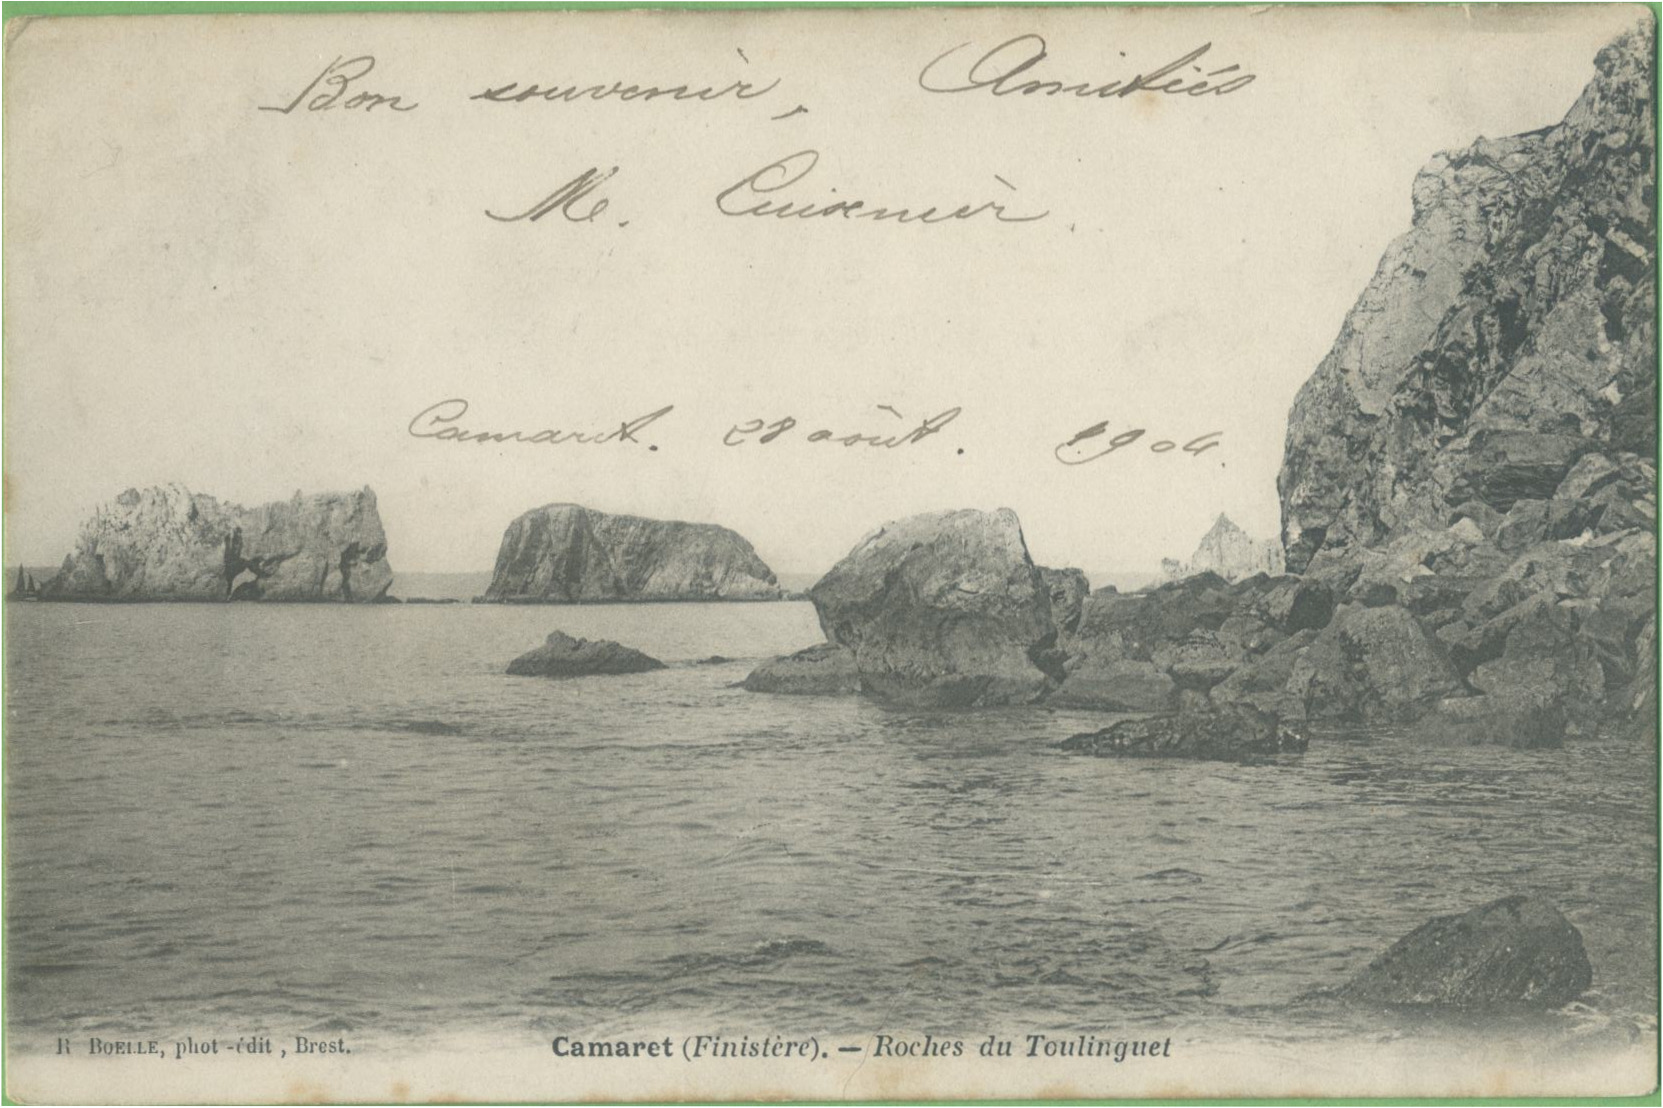 Bon souvenir, Amitiés
M. Cuisinier.
Camaret. 28 août. 1904.
R BOELLE, phot-édit, Brest.
Camaret (Finistère). — Roches du Toulinguet